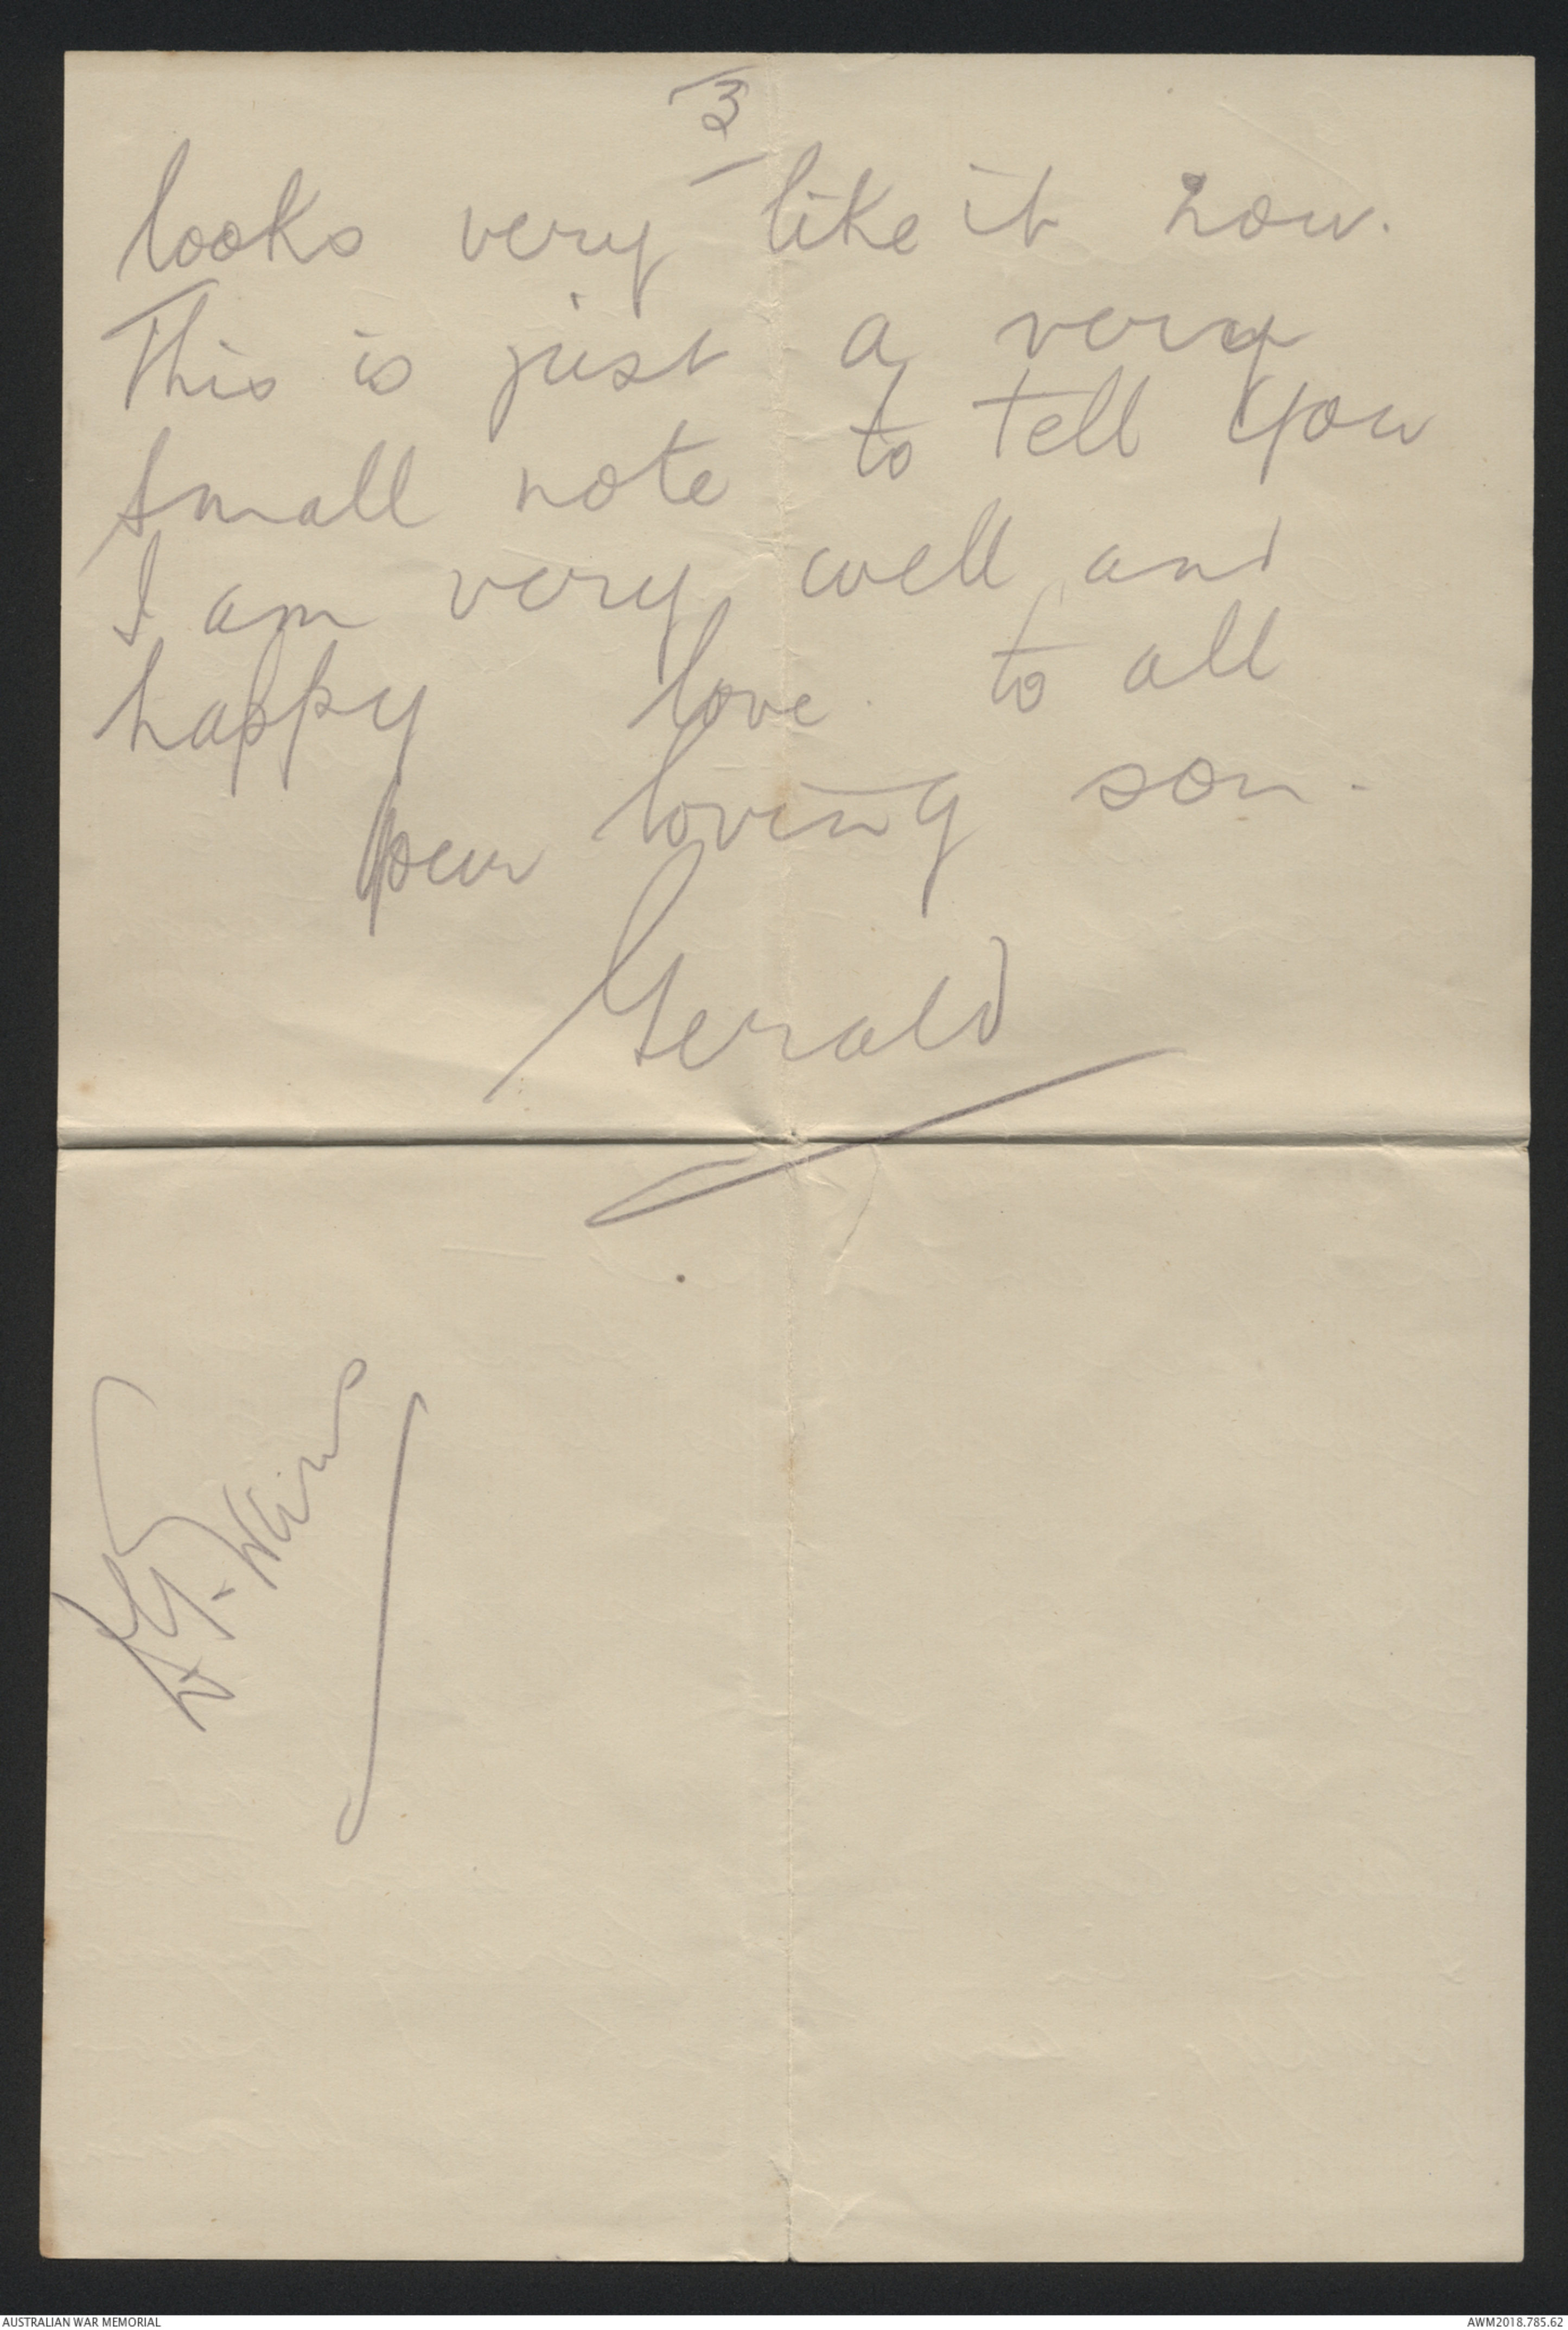 3
looks very like it now.
This is just a very
small note to tell you
I am very well and
happy love to all
your loving son.
Gerald
AUSTRALIAN WAR MEMORIAL
AWM2018.785.62